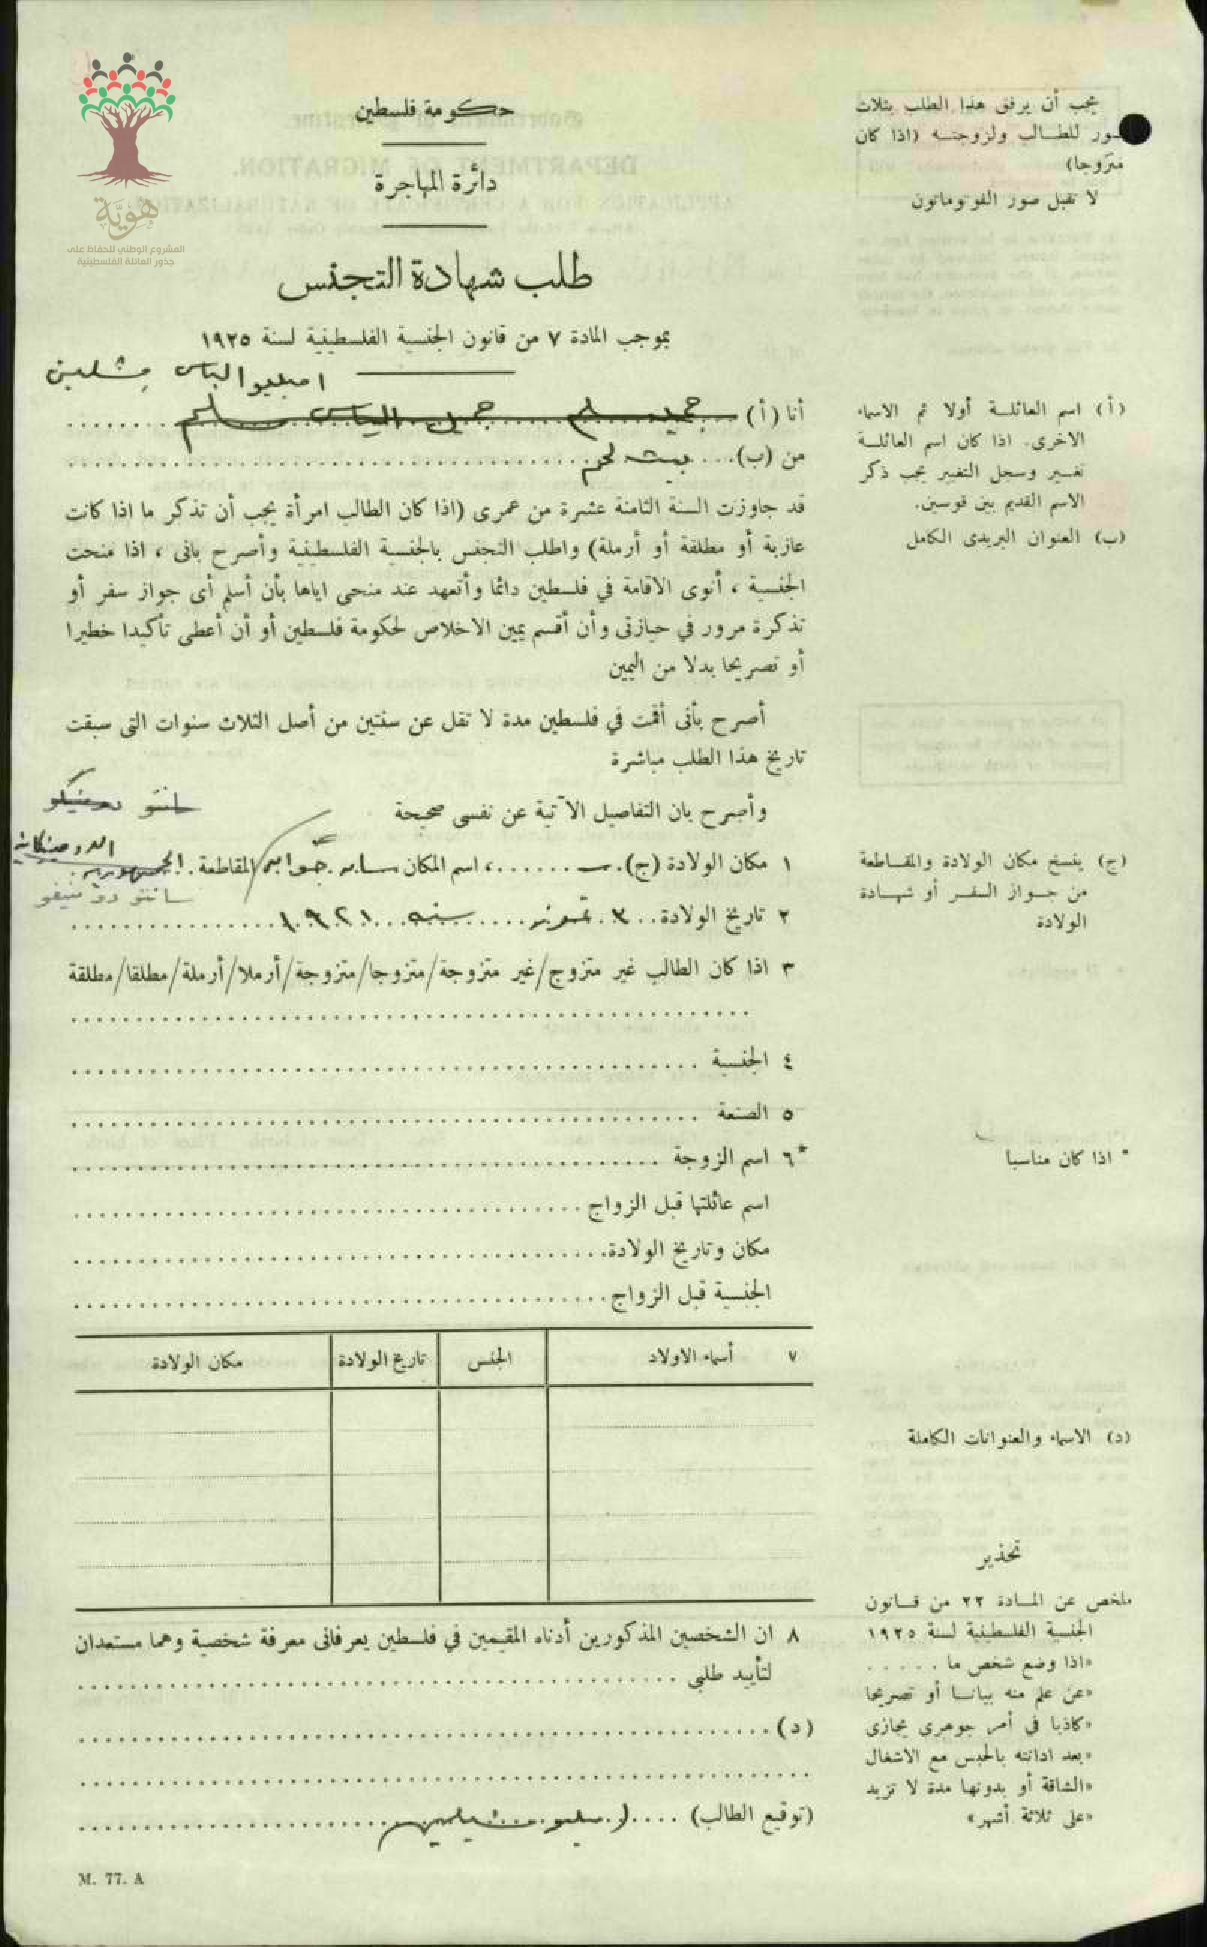 هويّة
المشروع الوطني للحفاظ على
جذور العائلة الفلسطينية
حكومة فلسطين
دائرة المهاجرة
طلب شهادة التجنس
بموجب المادة ٧ من قانون الجنسية الفلسطينية لسنة ١٩٢٥
يجب أن يرفق هذا الطلب بثلاث
صور للطالب ولزوجته (اذا كان
متزوجا)
لا تقبل صور الفوتوماتون
اميليو الياس
أنا (أ) جميل الياس سليم
من (ب) بيت لحم
قد جاوزت السنة الثامنة عشرة من عمرى (اذا كان الطالب امرأة يجب أن تذكر ما اذا كانت
عازبة أو مطلقة أو أرملة) واطلب التجنس بالجنسية الفلسطينية وأصرح بانى ، اذا منحت
الجنسية ، أنوى الاقامة في فلسطين دائما وأتعهد عند منحى اياها بأن أسلم أى جواز سفر أو
تذكرة مرور في حيازتى وأن أقسم يمين الاخلاص لحكومة فلسطين أو أن أعطى تأكيدا خطيرا
أو تصريحا بدلا من اليمين
أصرح بأنى أقمت في فلسطين مدة لا تقل عن سنتين من أصل الثلاث سنوات التى سبقت
تاريخ هذا الطلب مباشرة
وأصرح بان التفاصيل الآتية عن نفسى صحيحة
سانتو دومنيكو
١ مكان الولادة (ج) ، اسم المكان المقاطعة الجمهورية
الدومينكانية
٢ تاريخ الولادة ٣ تموز سنه ١٩٢١
٣ اذا كان الطالب غير متزوج/غير متزوجة/متزوجا/متزوجة/أرملا/أرملة/مطلقا/مطلقة
٤ الجنسية
٥ الصنعة
*٦ اسم الزوجة
اسم عائلتها قبل الزواج
مكان وتاريخ الولادة
الجنسية قبل الزواج
٧ أسماء الاولاد الجنس تاريخ الولادة مكان الولادة
٨ ان الشخصين المذكورين أدناه المقيمين في فلسطين يعرفانى معرفة شخصية وهما مستعدان
لتأييد طلبى
(د)
(توقيع الطالب)
M. 77. A
(أ) اسم العائلة أولا ثم الاسماء
الاخرى. اذا كان اسم العائلة
تغير وسجل التغيير يجب ذكر
الاسم القديم بين قوسين.
(ب) العنوان البريدى الكامل
(ج) ينسخ مكان الولادة والمقاطعة
من جواز السفر أو شهادة
الولادة
* اذا كان مناسبا
(د) الاسماء والعنوانات الكاملة
تحذير
ملخص عن المادة ٢٢ من قانون
الجنسية الفلسطينية لسنة ١٩٢٥
«اذا وضع شخص ما . . . . .
«عن علم منه بيانا أو تصريحا
«كاذبا في أمر جوهرى يجازى
«بعد ادانته بالحبس مع الاشغال
«الشاقة أو بدونها مدة لا تزيد
«على ثلاثة أشهر»